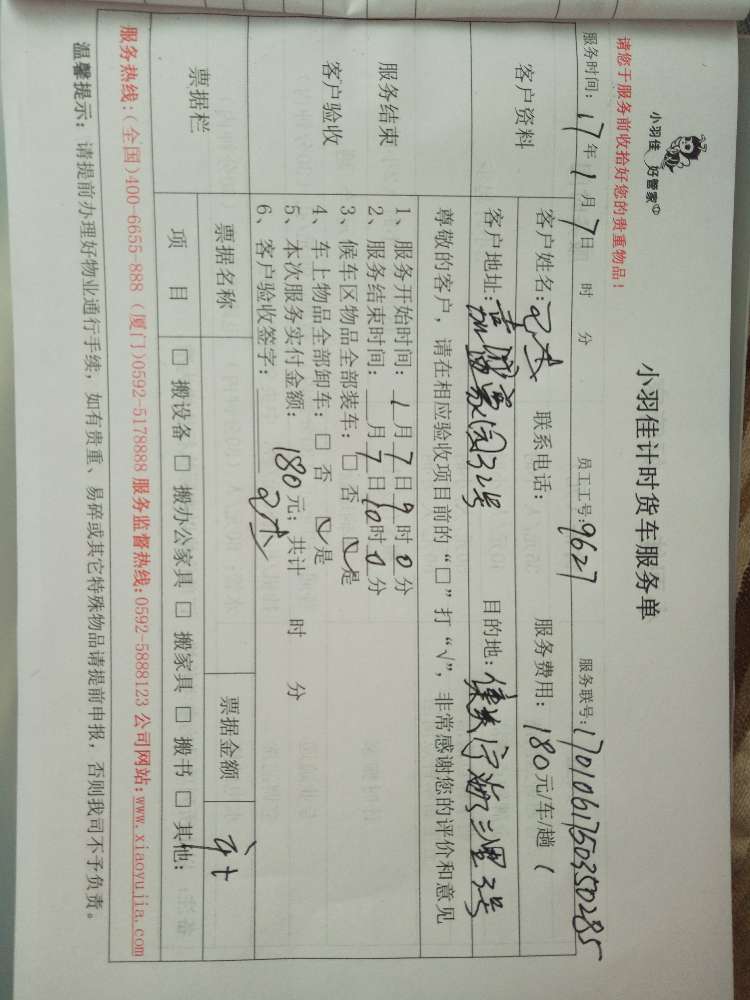 小羽佳 好管家
请您于服务前收拾好您的贵重物品！
小羽佳计时货车服务单
服务时间：17年1月7日 时 分 员工工号：9627 服务联号：170106175035028 5
客户资料
客户姓名： 联系电话： 服务费用：180元/车/趟（
客户地址：32号 目的地：三里3号
尊敬的客户，请在相应验收项目前的“□”打“√”，非常感谢您的评价和意见
服务结束
客户验收
1、服务开始时间：1月7日9时0分
2、服务结束时间：月7日10时0分
3、候车区物品全部装车：□否 ☑是
4、车上物品全部卸车：□否 ☑是
5、本次服务实付金额：180元；共计 时 分
6、客户验收签字：
票据栏
票据名称 票据金额
项 目 □搬设备 □搬办公家具 □搬家具 □搬书 □其他：
服务热线：(全国)400-6655-888 (厦门)0592-5178888 服务监督热线：0592-5888123 公司网站：www.xiaoyujia.com
温馨提示：请提前办理好物业通行手续，如有贵重、易碎或其它特殊物品请提前申报，否则我司不予负责。